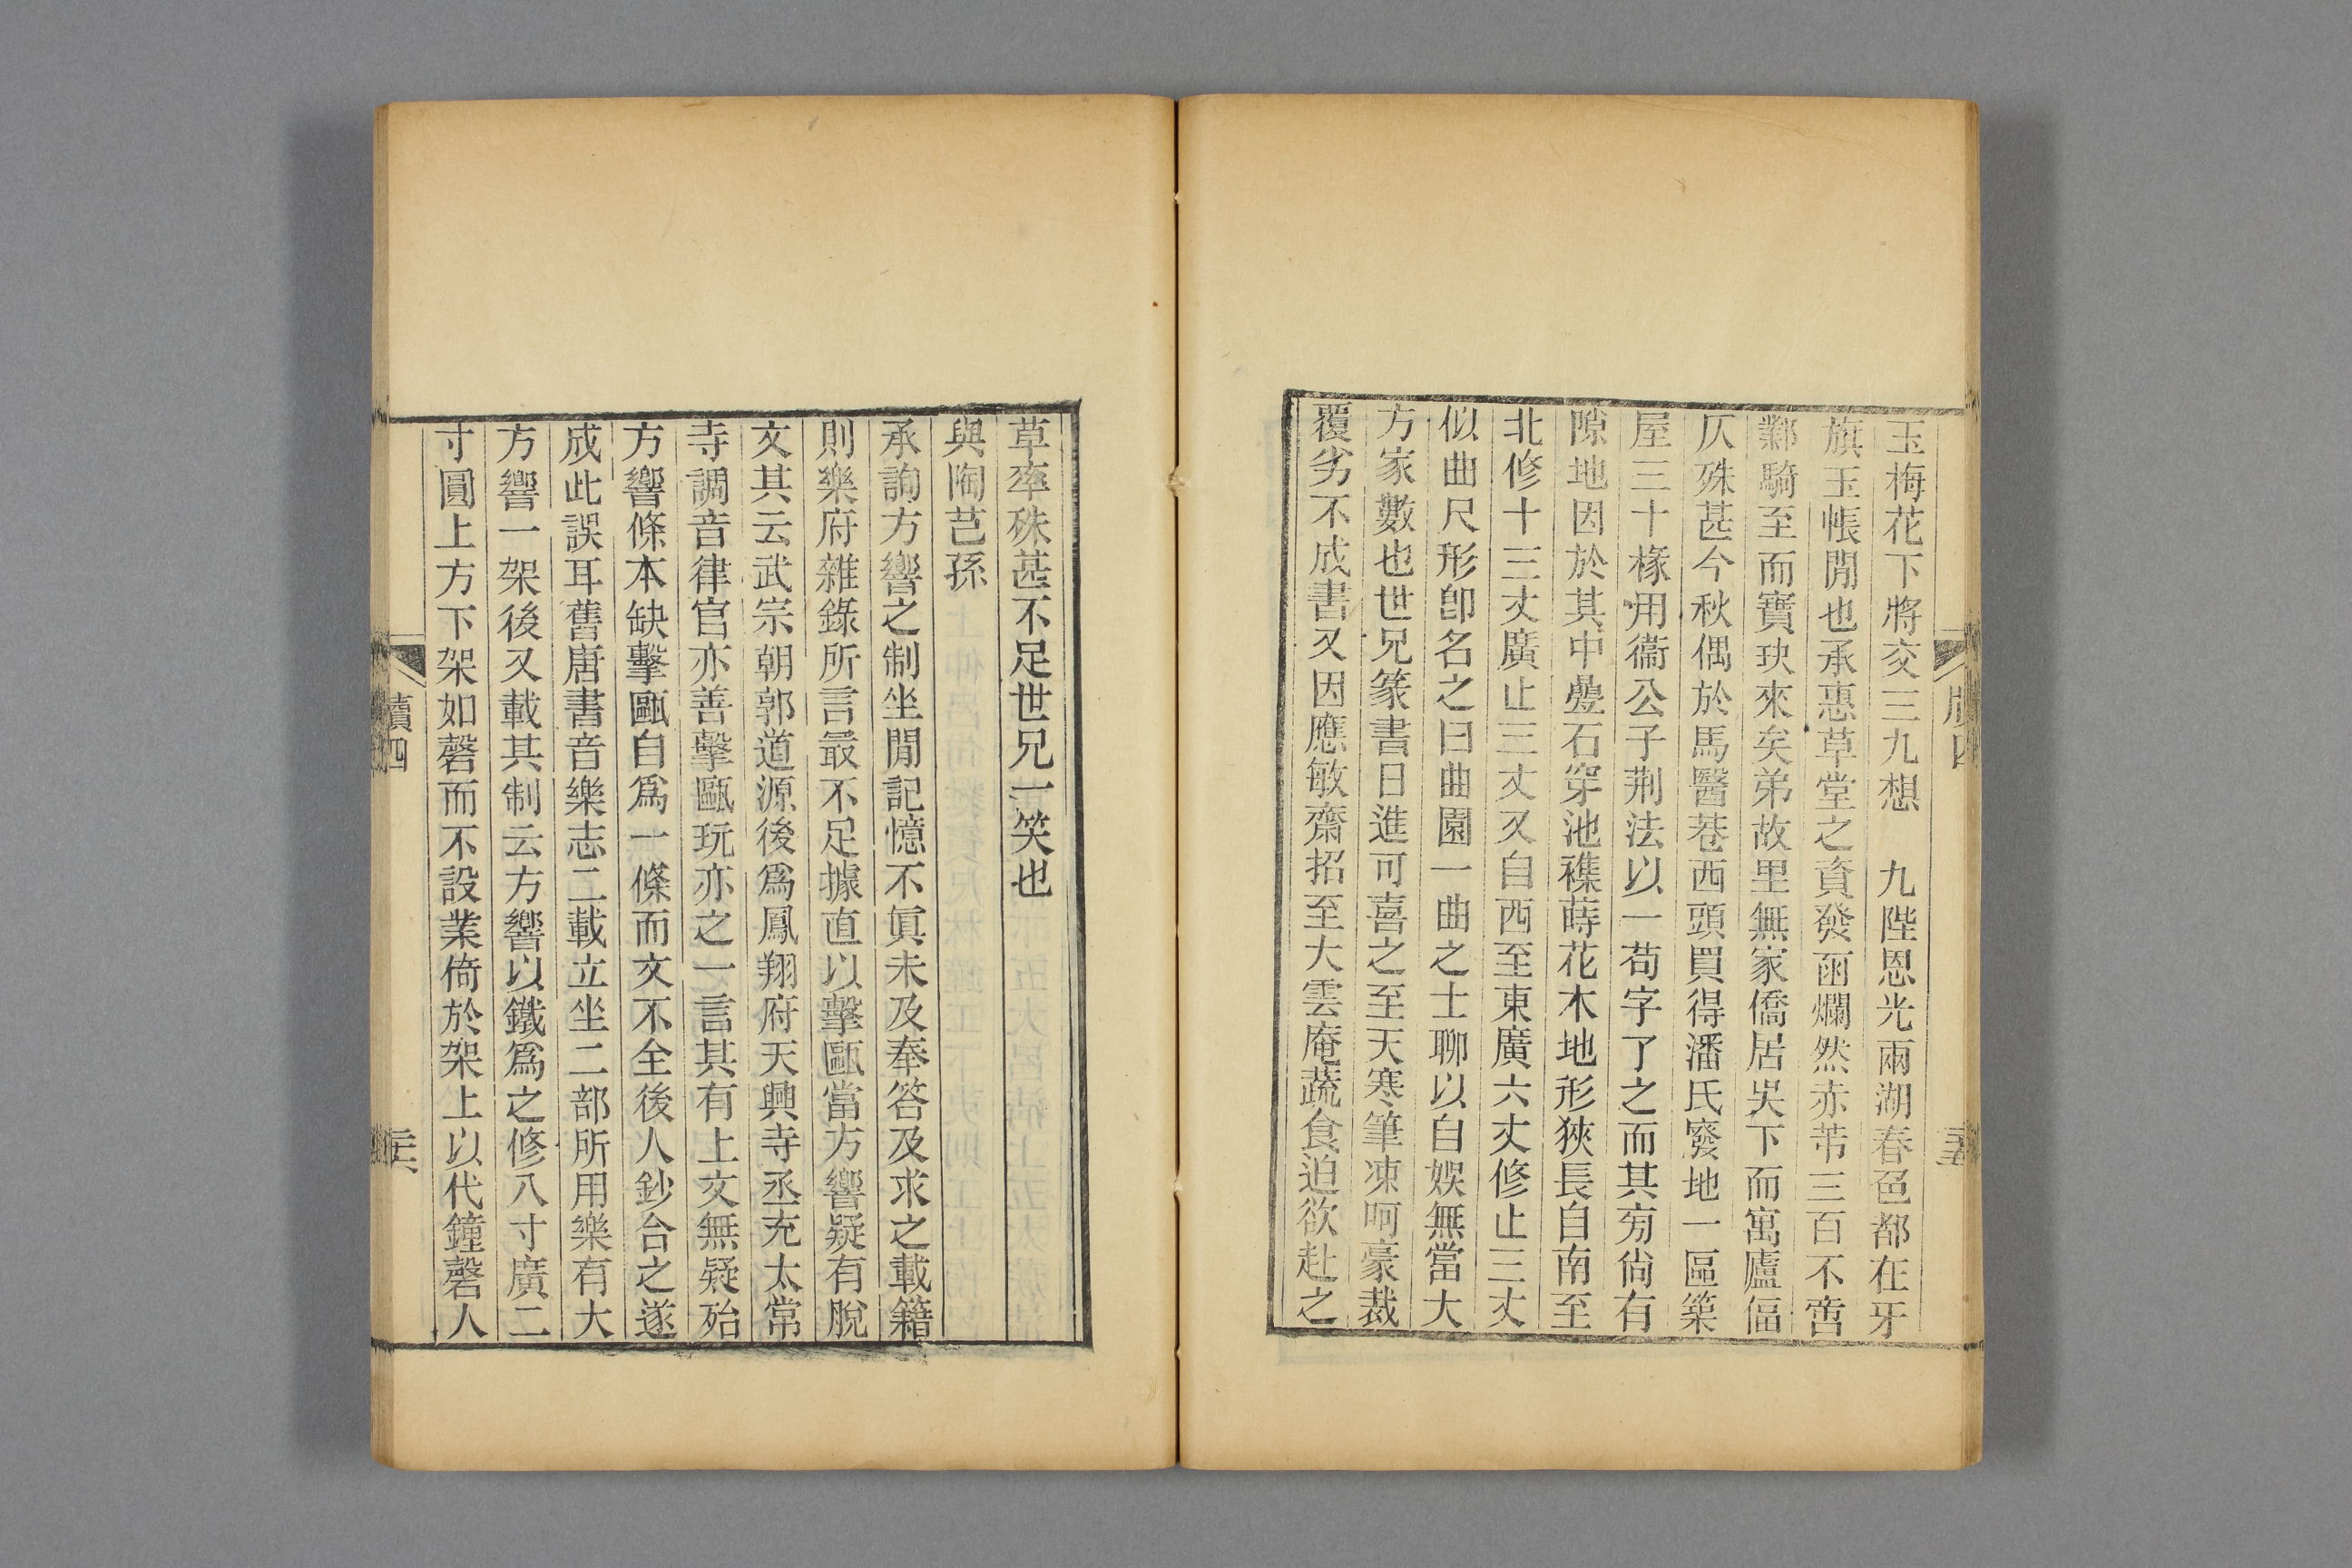 玉梅花下將交三九想　九陛恩光兩湖春色都在牙
旗玉帳閒也承惠草堂之資發函爛然赤芾三百不啻
鄴騎至而寶玦來矣弟故里無家僑居吳下而寓廬偪
仄殊甚今秋偶於馬醫巷西頭買得潘氏廢地一區築
屋三十椽用衞公子荆法以一苟字了之而其旁尙有
隙地因於其中疊石穿池襍蒔花木地形狹長自南至
北修十三丈廣止三丈又自西至東廣六丈修止三丈
似曲尺形卽名之曰曲園一曲之士聊以自娛無當大
方家數也世兄篆書日進可喜之至天寒筆凍呵豪裁
覆劣不成書又因應敏齋招至大雲庵蔬食迫欲赴之
草率殊甚不足世兄一笑也
與陶芑孫
承詢方響之制坐閒記憶不眞未及奉答及求之載籍
則樂府雜錄所言最不足據直以擊甌當方響疑有脫
文其云武宗朝郭道源後爲鳳翔府天興寺丞充太常
寺調音律官亦善擊甌玩亦之一言其有上文無疑殆
方響條本缺擊甌自爲一條而文不全後人鈔合之遂
成此誤耳舊唐書音樂志二載立坐二部所用樂有大
方響一架後又載其制云方響以鐵爲之修八寸廣二
寸圓上方下架如磬而不設業倚於架上以代鐘磬人
牘四